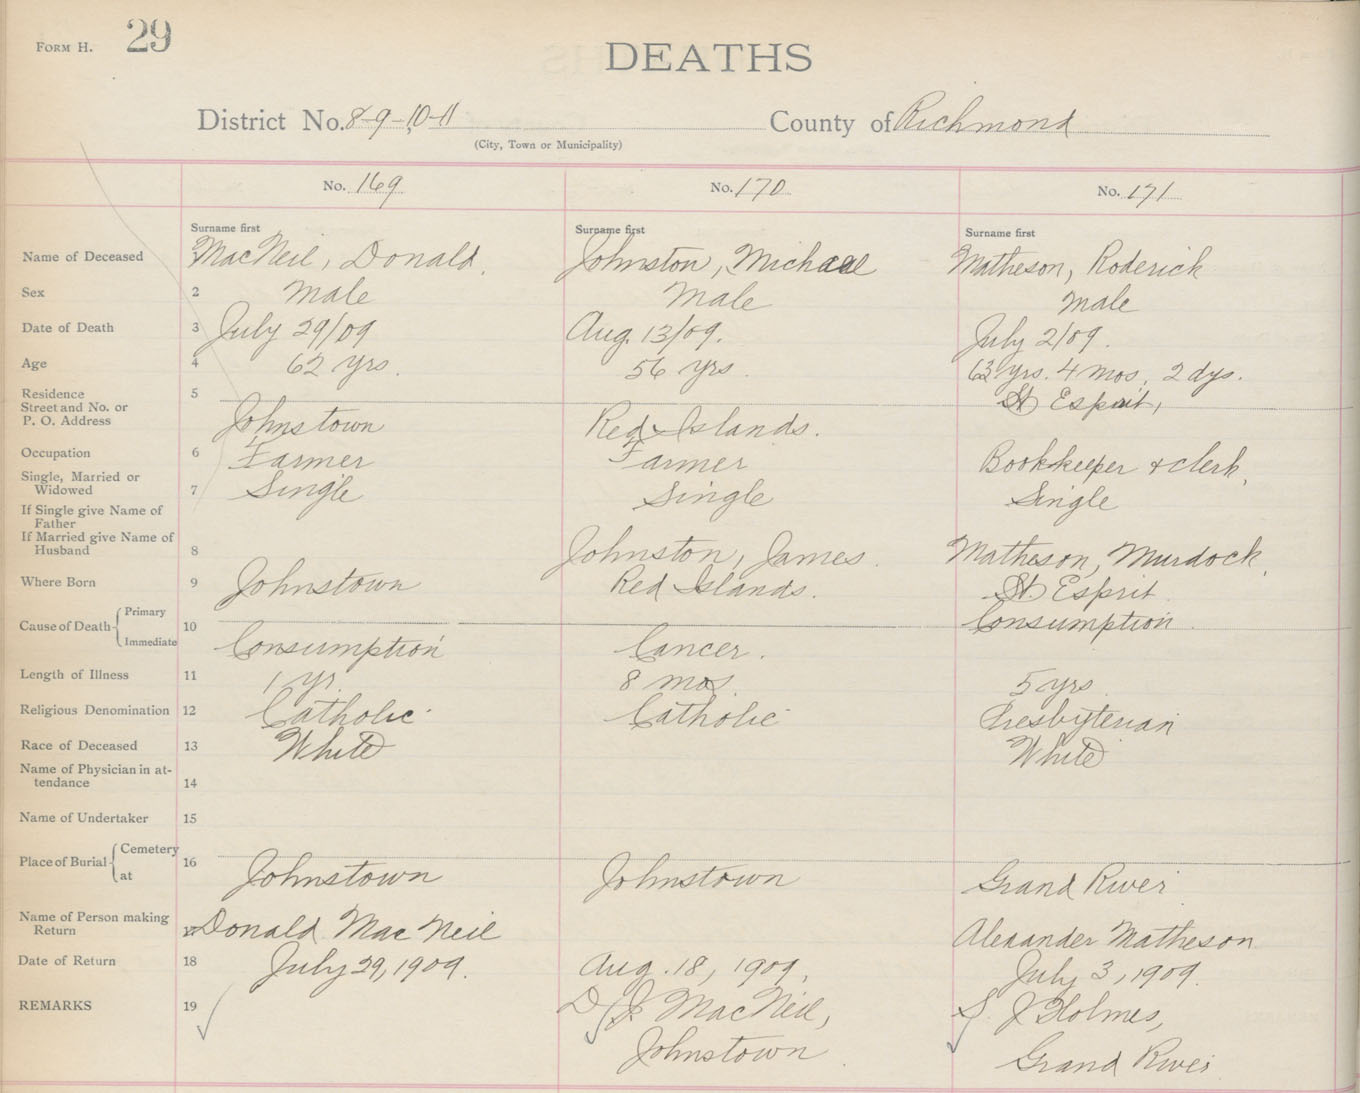 FORM H. 29
DEATHS
District No. 8-9-10-11 County of Richmond
(City, Town or Municipality)
No. 169 No. 170 No. 171
Surname first Surname first Surname first
Name of Deceased MacNeil, Donald. Johnston, Michael Matheson, Roderick
Sex 2 Male Male Male
Date of Death 3 July 29/09 Aug. 13/09. July 2/09.
Age 4 62 yrs. 56 yrs. 63 yrs. 4 mos, 2 dys.
Residence 5 St Esprit,
Street and No. or
P. O. Address Johnstown Red Islands.
Occupation 6 Farmer Farmer Bookkeeper & clerk,
Single, Married or
Widowed 7 Single Single Single
If Single give Name of
Father
If Married give Name of
Husband 8 Johnston, James. Matheson, Murdock,
Where Born 9 Johnstown Red Islands. St. Esprit
Primary Consumption.
Cause of Death 10
Immediate Consumption Cancer.
Length of Illness 11 1 yr. 8 mos. 5 yrs
Religious Denomination 12 Catholic Catholic Presbyterian
Race of Deceased 13 White White
Name of Physician in at-
tendance 14
Name of Undertaker 15
Cemetery
Place of Burial 16
at Johnstown Johnstown Grand River
Name of Person making
Return 17 Donald MacNeil Alexander Matheson
Date of Return 18 July 29, 1909. Aug. 18, 1909, July 3, 1909.
REMARKS 19 D. J. MacNeil, S. J Holmes,
Johnstown Grand River